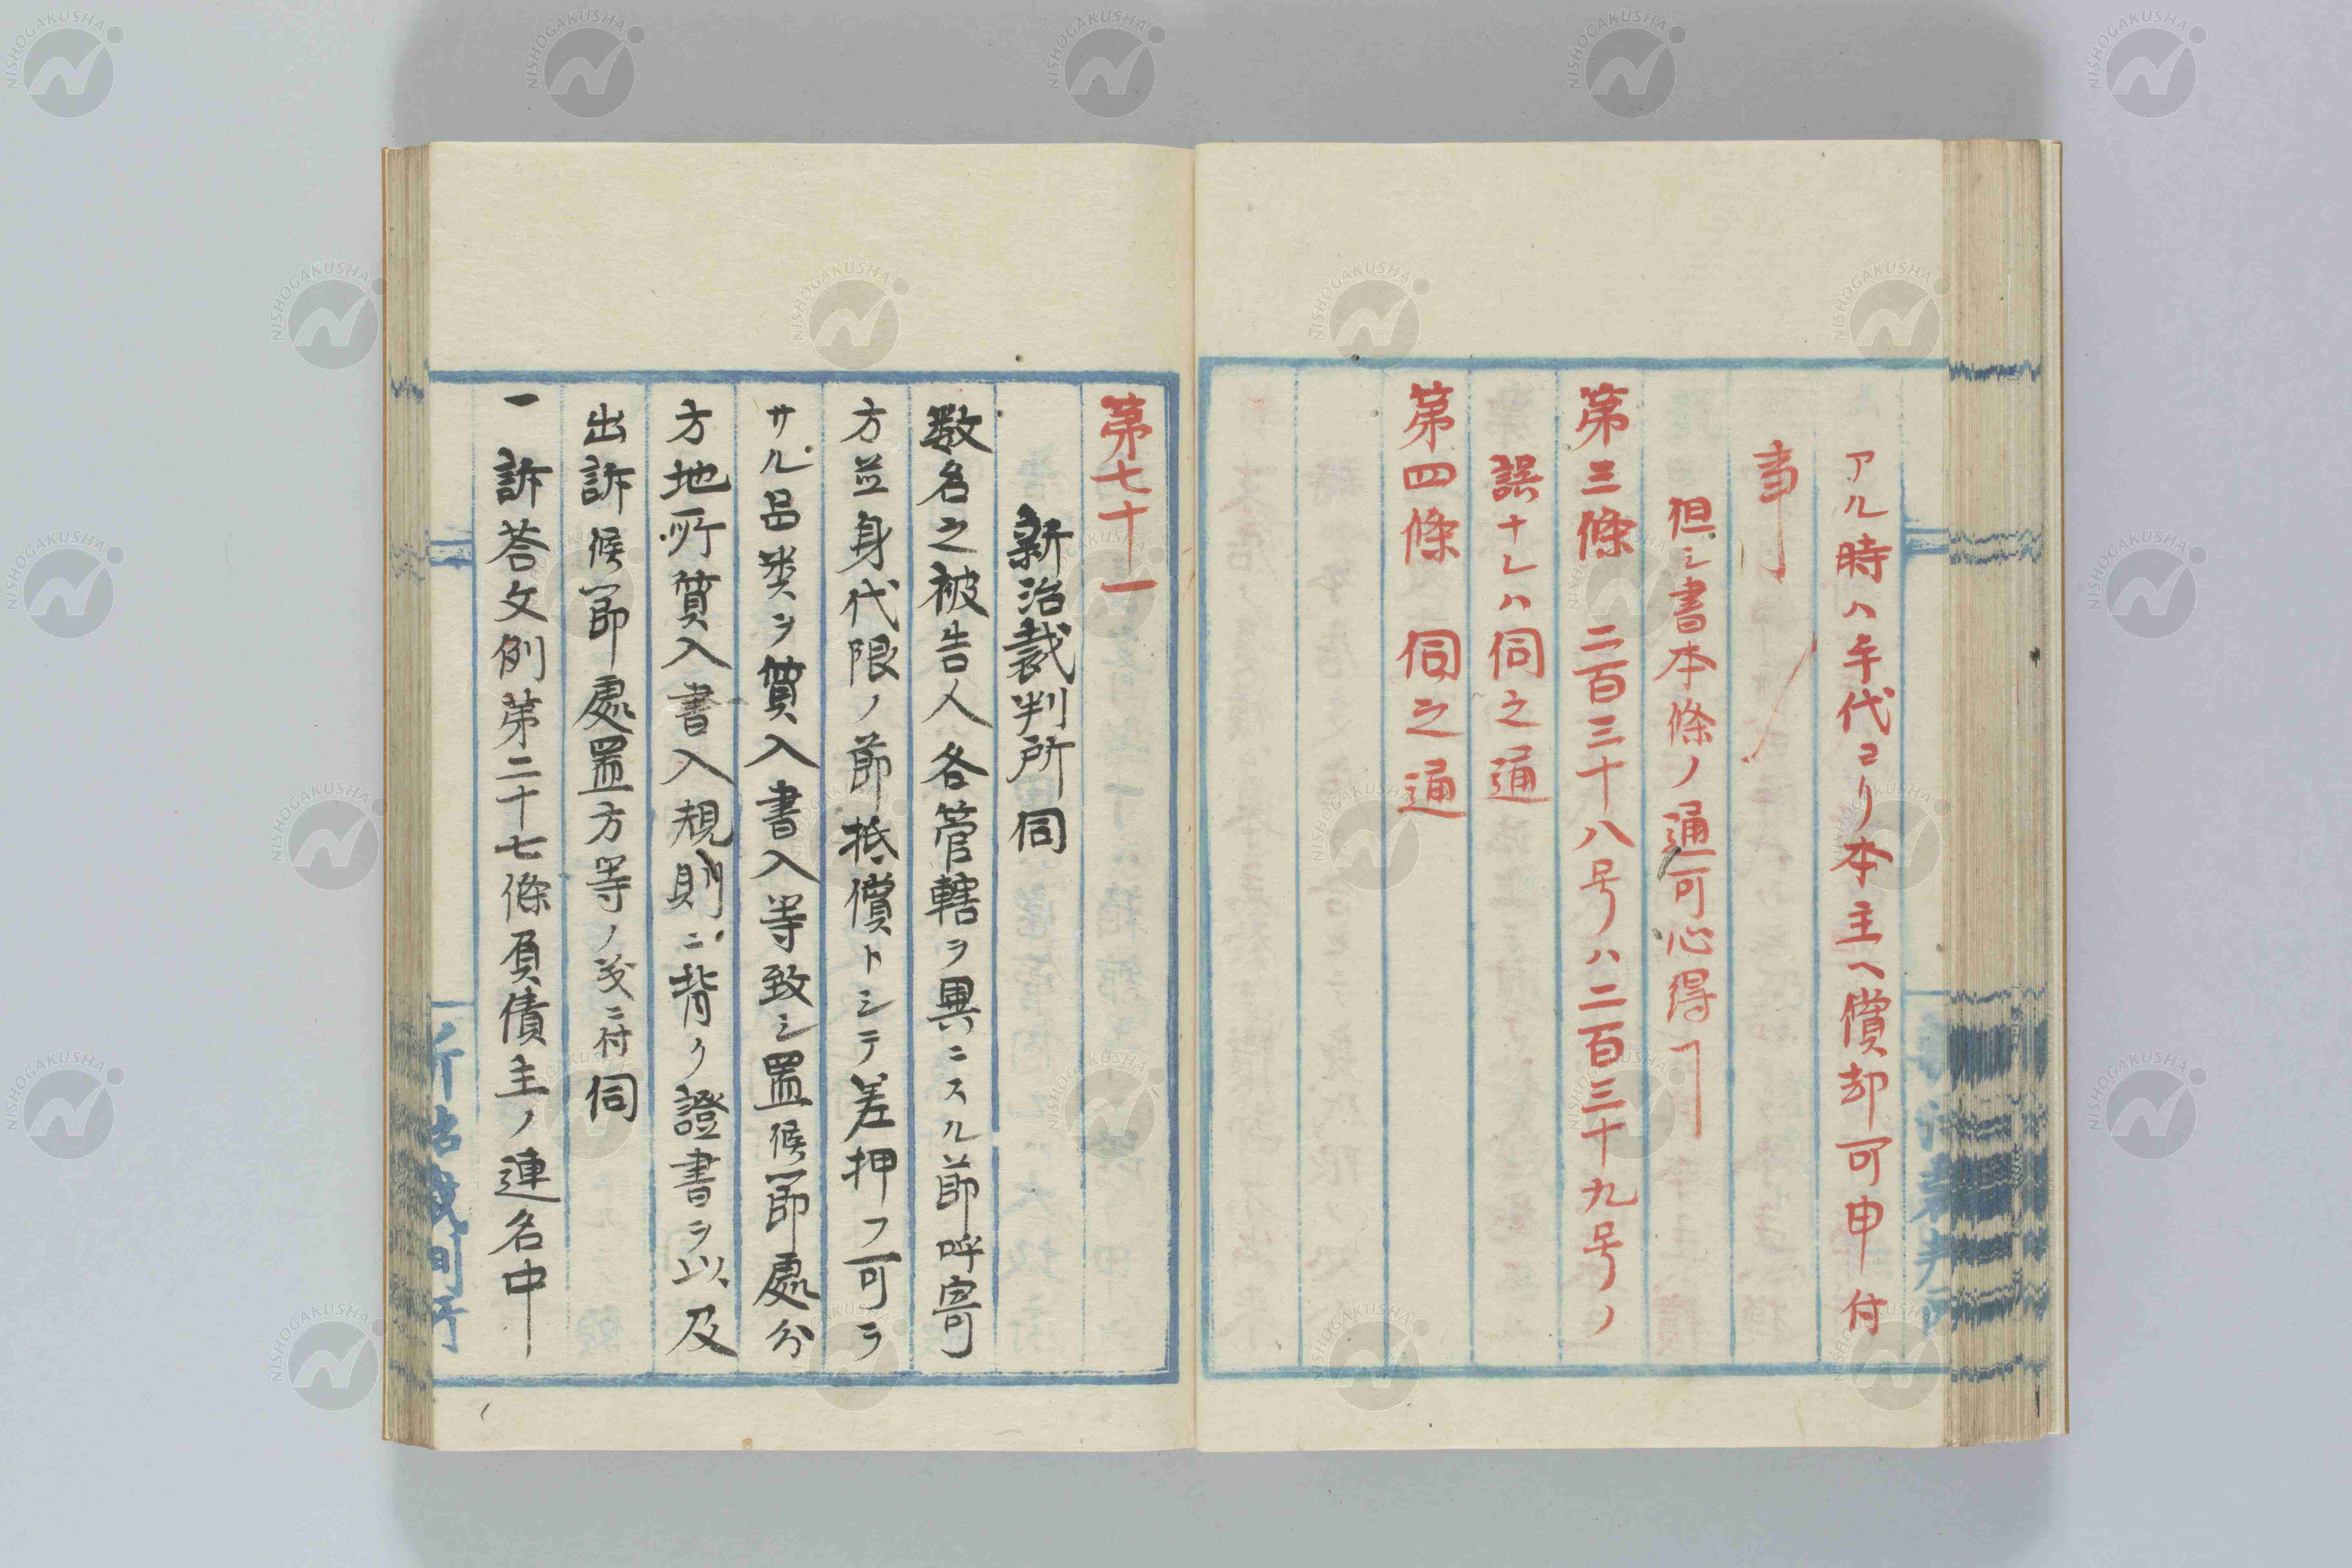 アル時ハ年代ヨリ本主ヘ償却可申付
事
但シ書本條ノ通可心得ヿ
第三條 二百三十八号ハ二百三十九号ノ
誤ナレハ伺之通
第四條 伺之通
第七十一
新治裁判所伺
数名之被告人各管轄ヲ異ニスル節呼寄
方並身代限ノ節抵償トシテ差押フ可ラ
サル品类ヲ質入書入等致シ置候節處分
方地所質入書入規則ニ背ク證書ヲ以及
出訴候節處置方等ノ義ニ付伺
一訴荅文例第二十七條負債主ノ連名中
新治裁判所
NISHOGAKUSHA